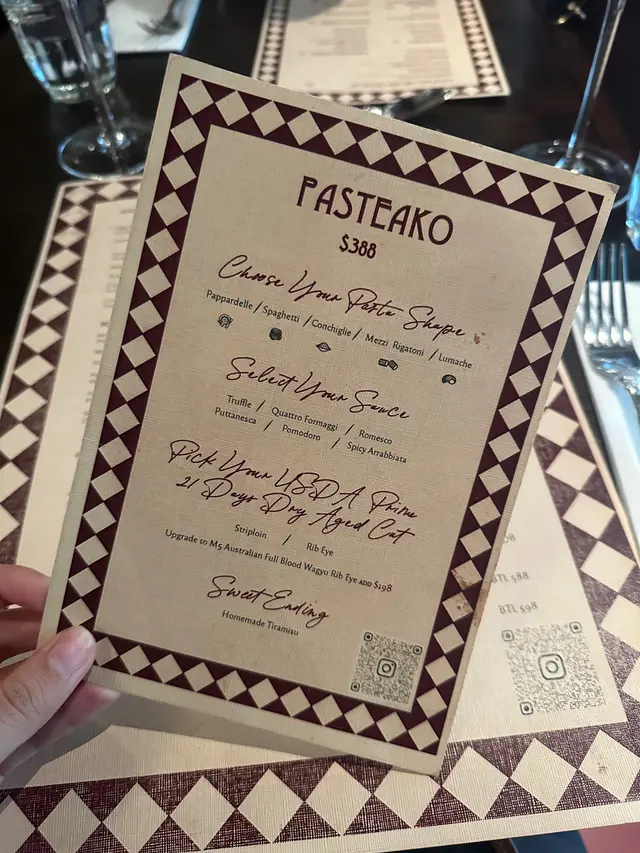 PASTEAKO
$388
Choose Your Pasta Shape
Pappardelle / Spaghetti / Conchiglie / Mezzi Rigatoni / Lumache
Select Your Sauce
Truffle / Quattro Formaggi / Romesco
Puttanesca / Pomodoro / Spicy Arrabbiata
Pick Your USDA Prime
21 Days Dry Aged Cut
Striploin / Rib Eye
Upgrade to M5 Australian Full Blood Wagyu Rib Eye ADD $198
Sweet Ending
Homemade Tiramisu
BTL 588
BTL 598